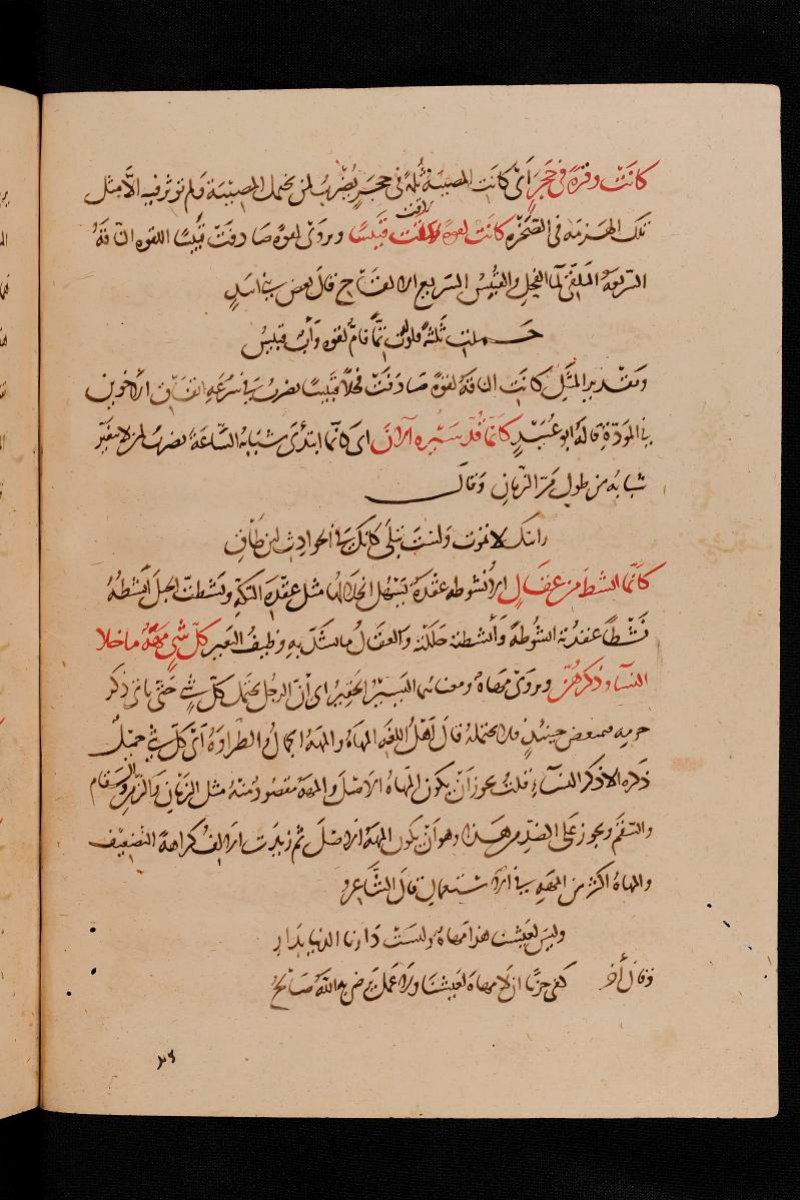 كانَتْ وقرَةً في حَجَرٍ اَىْ كانَتِ المصيبَة ثُلمَةً في حجَرٍ يُضْرَبُ لمن يحتمل المصِيْبَة وَلم تؤثر فيه الاَّ مثل
تلك الهَزمَة فى الصَّخْرَة كانَت لقوةً لاقت قَبِيْسًا ويروَىْ لقوةً صَادفَتْ قَبِيْسًا اللقوه الناقةُ
السَّريعَةُ التلقّى لماء الفحل والقَبِيْسُ السَّريع الالقَاح قالَ بعض بنى اسَدٍ
حَملت ثَلثةً فولدت تمًّا فامٌّ لقوه وَأبٌ قبيسُ
وتقدير المثَل كانَت الناقَةُ لقوةً صَادَفَتْ فحْلاً قَبِيْسًا يضرَبُ في سُرعَةِ اتفَاقِ الاَخوين
فى المَودّةِ قالَهُ ابو عُبَيْدٍ كَانّما قُدَّ سَيْرُه الآنَ اى كَانّما ابتدُئَ شبَابُهُ السَّاعَةَ يضرَبُ لمن لا يتغيّر
شبَابُه من طول مَرّ الزَّمانِ وَقالَ
رايتك لا تموت وَلستَ تبلَى كانكَ في الحوادِثِ لين طَاقِ
كأنّمَا انشط مِن عقَالٍ الانشُوطه عقْدَةٌ يَسْهُل انحلالهُا مثل عقْدَةِ التكّةِ ونَشَطتُ الحبلَ اَنشطُهُ
نَشْطاً عقدْتهُ انشُوطةً وَأَنشطتهُ حَلَلتهُ وَالعقَالُ ما يشَدّ بهِ وَظِيفُ البَعير كلّ شىءٍ مَهَهٌ ما خلا
النسَآء وَذكرهُنّ ويروَىْ مَهاهٌ ومعناهما اليَسيْرُ الحقِيْرُ اى أنّ الرجُل يحتمل كلّ شىءٍ حَتّى ياتىَ ذكر
حرمِه فيمتعض حينئذٍ فلا يحتملهُ قالَ أهْلُ اللغَةِ المهَاهُ والمهَهُ الجمالُ والطَّراوَةُ أىْ كلّ شىءٍ جميْلٌ
ذكره الا ذكر النسَآء قلتُ يجوز أنْ يكون المهاهُ الاَصْل وَالمهَهُ مقصُودٌ منهُ مثل الزَّمَانِ وَالزَّمَنِ وَالسَّقامِ
والسَّقَم ويجوز عَلَى الضدِّ من هَذا وهو أنْ يكون المهَهُ الاَصْلَ ثم زيدَت الاَلفُ كراهَة التضعِيْف
والمهاهُ اكثرُ من المههِ في الاسْتعمالِ قالَ الشَّاعِرُ
وليسَ لعَيْشنَا هَذا مَهاهٌ وَليسَتْ دَارنا الدنيا بِدَارِ
وَقالَ آخرُ كفى حزنًا ان لا مهاهَ لعيشنَا وَلا عَملٌ يرضى به اللهُ صَالحُ